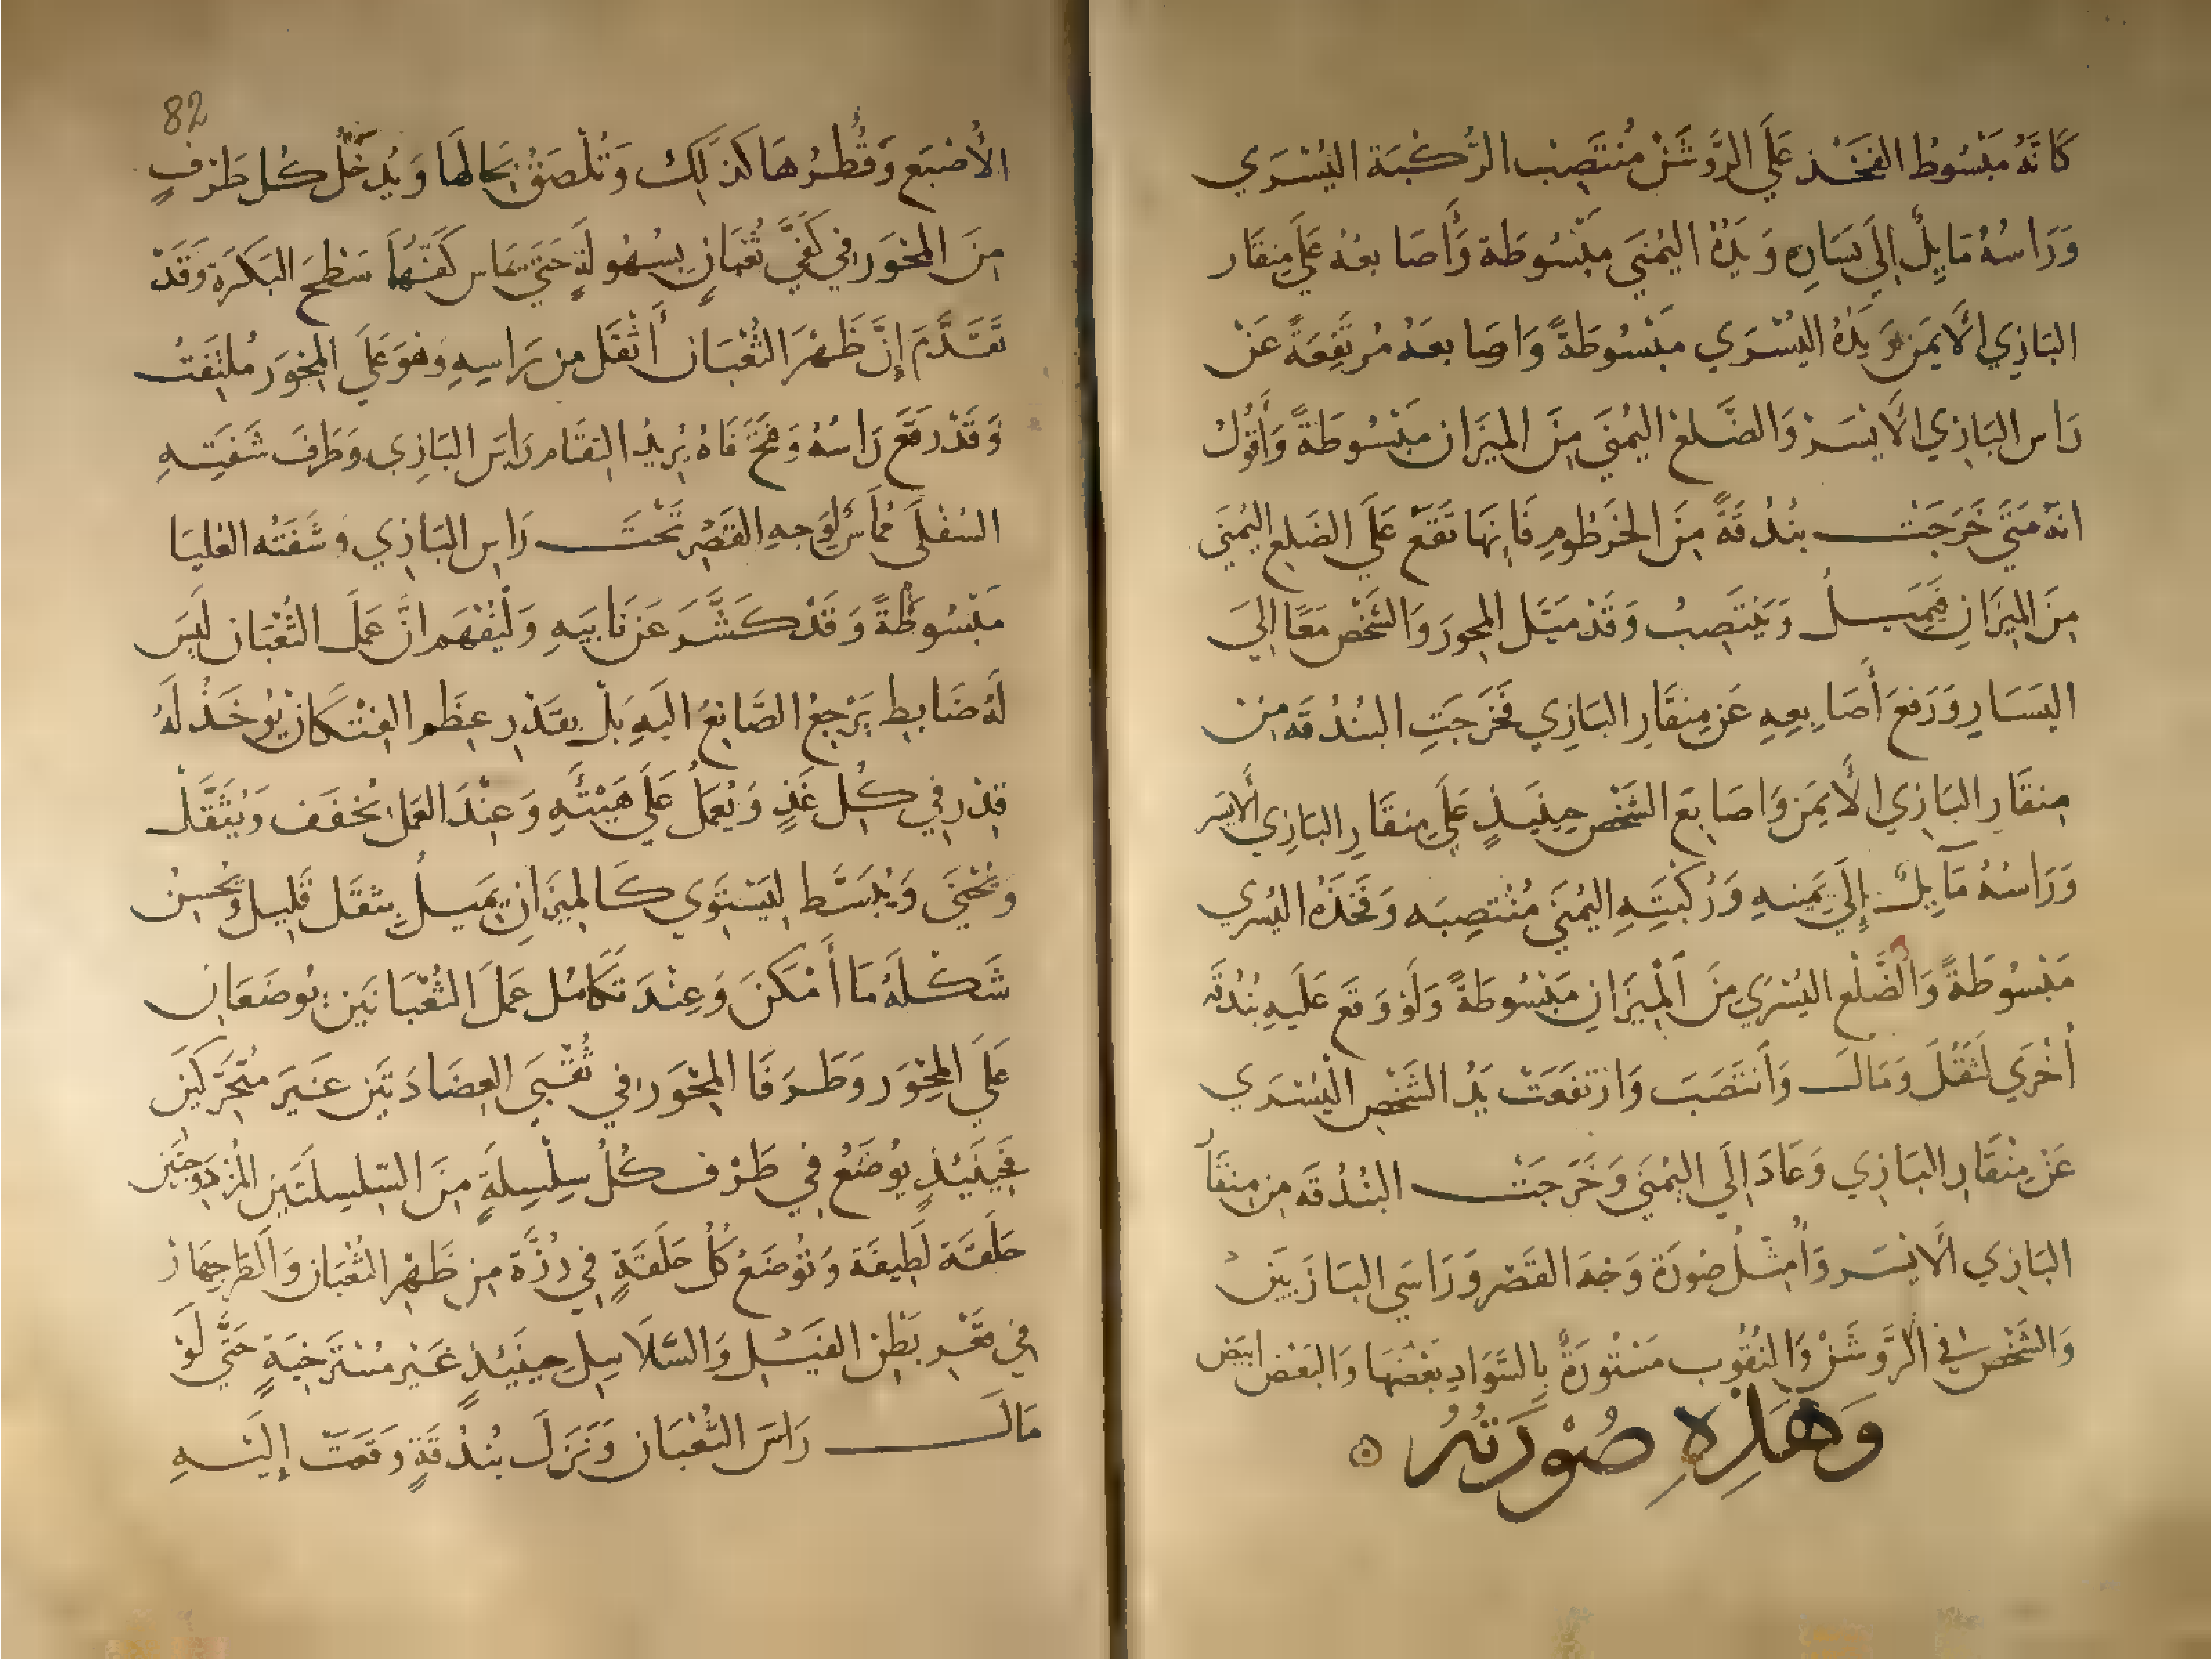 كَانَّهُ مَبْسُوطُ الفَخْذ عَلَي الرَّوْشَنْ مُنتَصِبْ الرُّكبَة اليُسْرَي
وَرَاسُهُ مَايِلٌ اِلَي يَسَارِهِ وَيَدُهُ اليُمْنَي مَبْسُوطَة وَأَصَابعُهُ عَلَي مِنقَار
البَازِي الأَيمَن وَيَدُهُ اليُسْرَي مَبْسُوطَةً وَاصَابعَهُ مُرتَفِعَةً عَنْ
رَاس البَازِي الأَيْسَرْ وَالضَّلعْ اليُمنَي مِنَ المِيزَان مَبْسُوطَةً وَأَقُولُ
انهُ مَتَي خَرَجَتْ بنُدُقَةً مِنَ الخَرطُومِ فَاِنهَا تَقَعْ عَلَي الضَلعِ اليُمنَي
مِنَ المِيزَانِ فَيَميلُ وَيَنْتَصِبُ وَقَدْ مَيَّل المِحورَ وَالشَخْص مَعًا اِلَي
اليَسَارِ وَرَفعَ أَصَابِعِهِ عَن مِنقَارِ البَازِي فَخَرَجَتِ البُندُقَه مِنْ
مِنقَارِ البَازِي الأَيمَن وَاصَابعَ الشَخْص حِينَيِذٍ عَلَي مِنقَارِ البَازِي الأَيسَر
وَرَاسُهُ مَآيِلٌ إِلَي يَمينِهِ وَرُكْبَتِهِ اليُمنَي مُنْتصِبَه وَفَخَذُهُ اليُسرَي
مَبْسُوطَةً وَالضِّلْع اليُسْرَي مِنَ اَلْمِيزَانِ مَبْسُوطَةً وَلَوْ وَقَعَ عَلَيهِ بُندُقَه
أُخْرَي لَثَقُلَ وَمَالَ وَاَنتَصَبَ وَارْتفَعَتْ يَدُ الشَخْصِ الْيُسْرَي
عَنْ مِنْقَارِ البَازِي وَعَادَ اِلَي اليُمْنَي وَخَرَجَتْ البُنْدُقَه مِن مِنقَار
البَازِي الأَيْسَر وَاُمَثِّلُ صُورَة وَجْهَ القَصْرِ وَرَاسَي البَازَيَينْ
وَالشَخْص فِي الرَّوشَنْ وَالنُقُوب مَسْتُورَةٌ بِالسَّوَادِ بَعْضُهَا وَالبَعْض ابيَض
وَهَذِهِ صُوْرَتُهُ ۞
82
الأُصْبَع وَقُطرُهَا كَذَلِكَ وَتُلْصَقُ بِحَالهَا وَيُدخَلُ كُل طَرْفٍ
مِنَ المِحْوَر فِي كَفَّي ثُعْبَانٍ بِسُهُولَةٍ حَتَي تمَاس كَفّهُمَا سَطْحَ البَكَرَة وَقَدْ
تَقَدَّمَ إِنَّ ظَهْرَ الثُعْبَان أَثْقَل مِن رَاسِهِ وَهوَ عَلَي المِحْوَر مُلتَفِتُ
وَقَدْ رَفَع رَاسُهُ وَفَتَحَ فَاهُ يُرِيدُ التِقَام رَاسَ البَازِي وَطَرَفَ شَفَتِهِ
السُفْلَي مُمَاسٌ لِوَجهِ القَصْرِ تَحْتَ رَاسِ البَازِي وَشَفَتُه العُليَا
مَبْسُوطَةً وَقَدْ كَشَّرَ عَن نَابَيهِ وَلْيُفْهَم انَّ عَمَل الثُعْبَان لَيسَ
لَهُ ضَابِط يَرْجِعُ الصَّانِعُ اليَهِ بَلْ بِقَدْرِ عِظَم الفِنْكَان يُوخَذُ لَهُ
قِدْر فِي كُلِ غَذٍ وَيُعمَلُ عَلَي هَيْئَتِهِ وَعِنْدَ العَمَل يُخَفَف وَيُثَقَّلْ
وَيُحْنَي وَيُبَسَّط لِيَسْتَوِي كَالمِيزَانِ يَميلُ بِثقَل قَلِيلٍ وَيُحسِنُ
شَكْلَهُ مَا أَمْكَنَ وَعِنْدَ تَكَامُل عَمَلَ الثُعْبَانَين يُوضَعَانِ
عَلَي المِحْوَر وَطَرَفَا المِحْوَر فِي ثُقْبَي العِضَادَتَين غَيرَ مُتَحَرِّكَينِ
فَحِينَيذٍ يُوضَعُ فِي طَرْف كُلُ سِلْسِلَةٍ مِنَ السِلسِلَتَين المُزدَوجَتَين
حَلَقَة لَطِيفَة وَتُوضَعُ كُلُ حَلَقَةٍ فِي رُزَّة مِن ظَهْرِ الثُعْبَان وَالطَرجهَارْ
فِي مَقْعرِ بَطْنِ الفِيْلِ وَالسَّلَاسِلِ حِينَيْذٍ غَيْر مُسْتَرخِيَةٍ حَتَّي لَوْ
مَالَ رَاسَ الثُعْبَان وَنَزَلَ بُنْدُقَةٍ وَقَعَتْ إِلَيْهِ